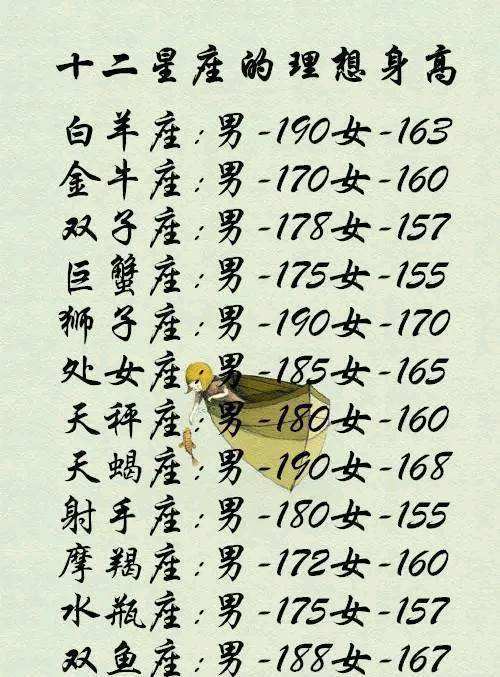 十二星座的理想身高
白羊座:男-190女-163
金牛座:男-170女-160
双子座:男-178女-157
巨蟹座:男-175女-155
狮子座:男-190女-170
处女座:男-185女-165
天秤座:男-180女-160
天蝎座:男-190女-168
射手座:男-180女-155
摩羯座:男-172女-160
水瓶座:男-175女-157
双鱼座:男-188女-167